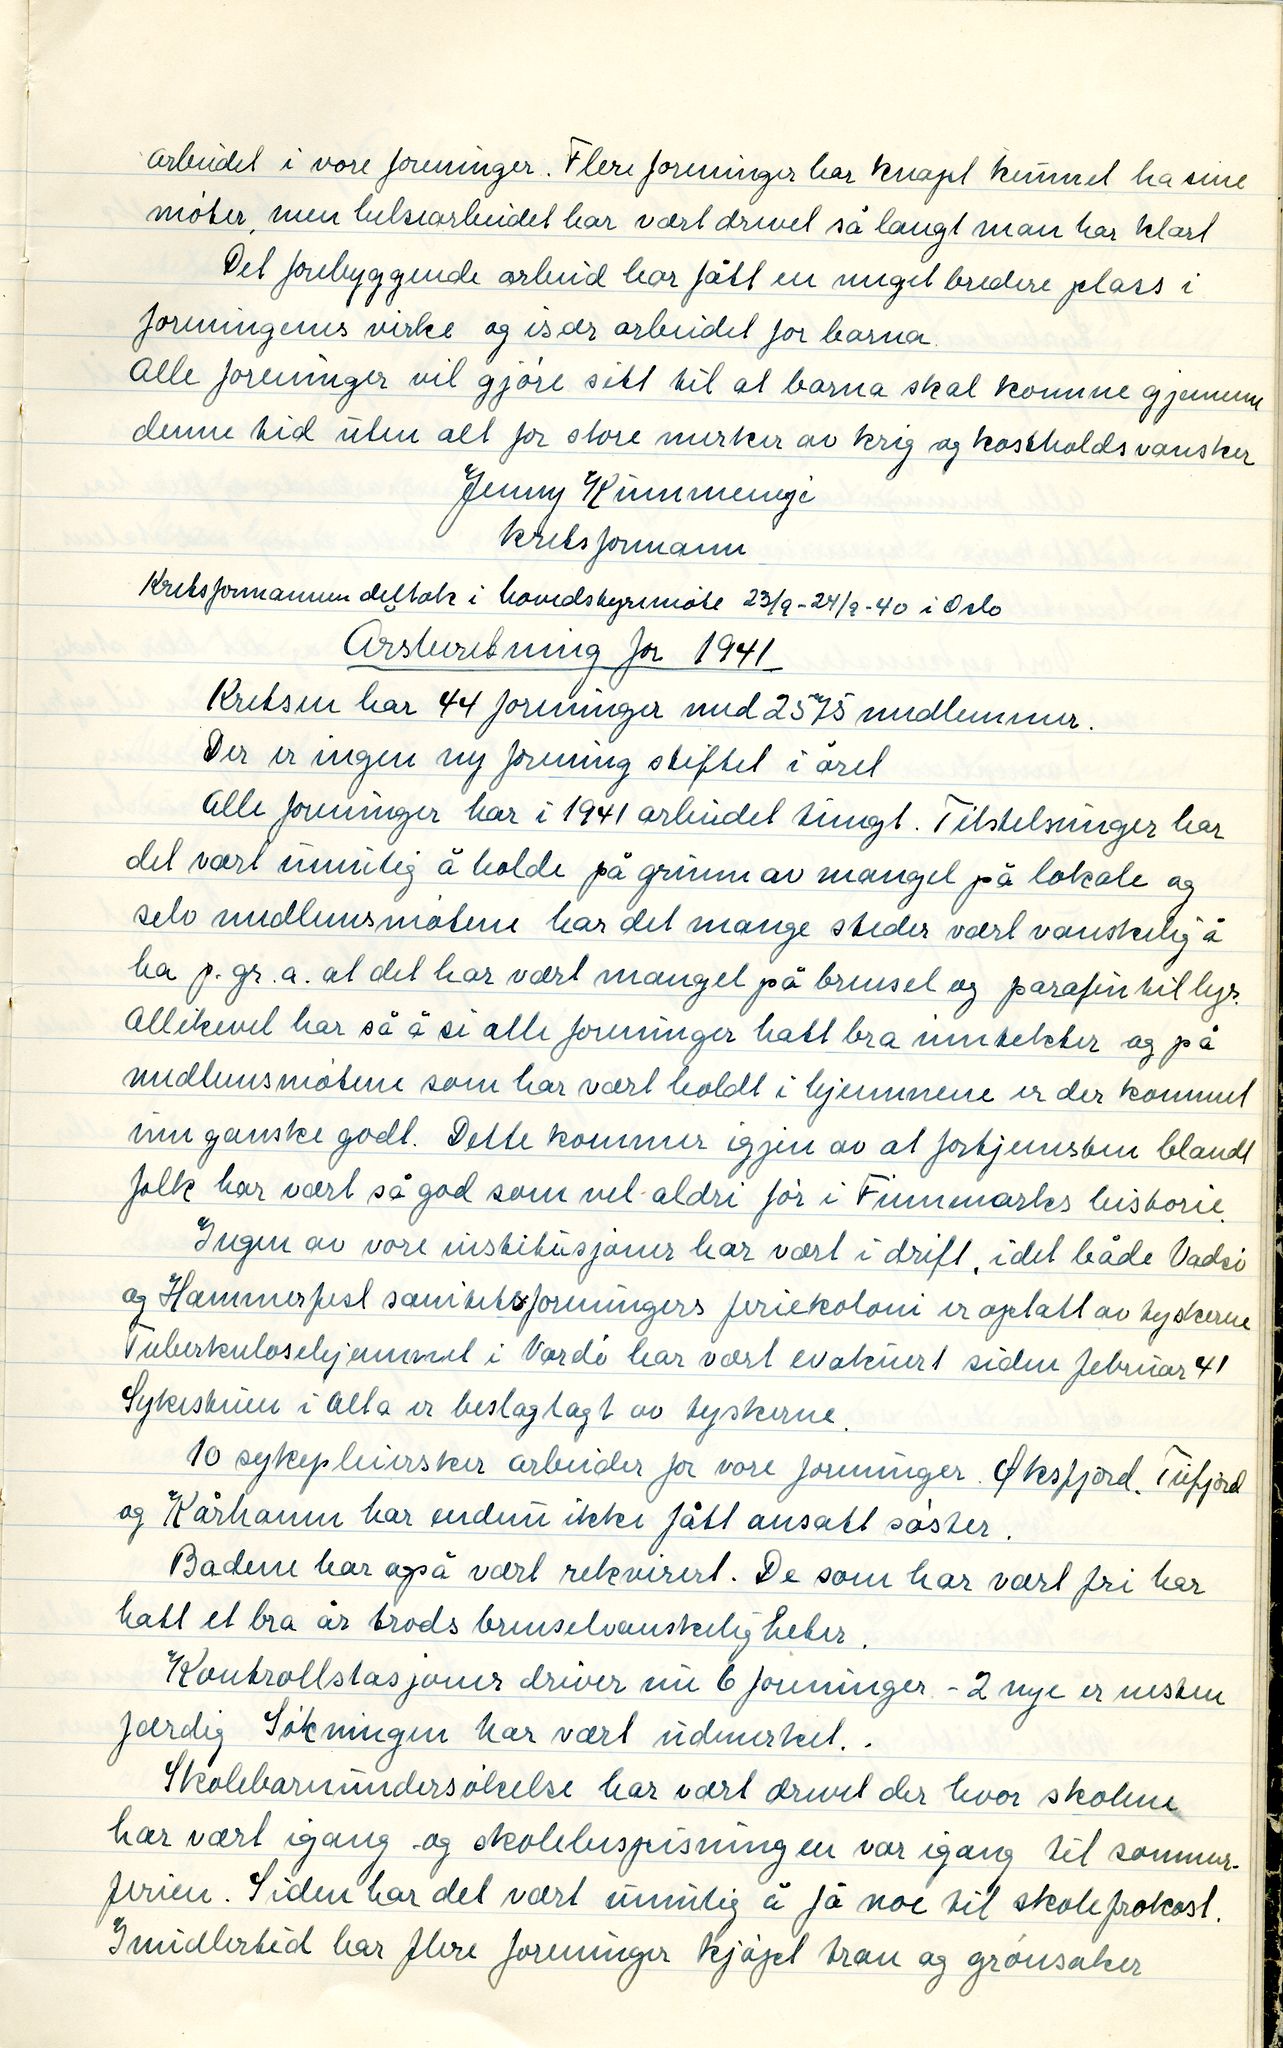 arbeidet i vore foreninger. Flere foreninger har knapt kunnet ha sine
møter, men helsearbeidet har vært drevet så langt man har klart
Det forebyggende arbeid har fått en meget bredere plass i
foreningenes virke og især arbeidet for barna.
Alle foreninger vil gjøre sitt til at barna skal komme gjennem
denne tid uten alt for store merker av krig og kostholdsvansker
Jenny Kummeneje
kretsformann
Kretsformannen deltok i hovedstyremøte 23/9-24/9-40 i Oslo
Årsberetning for 1941
Kretsen har 44 foreninger med 2575 medlemmer.
Der er ingen ny forening stiftet i året
Alle foreninger har i 1941 arbeidet tungt. Tilstelninger har
det vært umulig å holde på grunn av mangel på lokale og
selv medlemsmøtene har det mange steder vært vanskelig å
ha p.gr.a. at det har vært mangel på brensel og parafin til lys.
Allikevel har så å si alle foreninger hatt bra inntekter og på
medlemsmøtene som har vært holdt i hjemmene er der kommet
inn ganske godt. Dette kommer igjen av at fortjenesten blandt
folk har vært så god som vel aldri før i Finnmarks historie.
Ingen av vore institusjoner har vært i drift, idet både Vadsø
og Hammerfest sanitetsforeningers feriekoloni er optatt av tyskerne
Tuberkulosehjemmet i Vardø har vært evakuert siden februar 41
Sykestuen i Alta er beslaglagt av tyskerne.
10 sykepleiersker arbeider for vore foreninger. Øksfjord, Tufjord
og Kårhamn har endnu ikke fått ansatt søster.
Badene har også vært rekvirert. De som har vært fri har
hatt et bra år trods brenselvanskeligheter.
Kontrollstasjoner driver nu 6 foreninger - 2 nye er nesten
færdig Søkningen har vært udmerket..
Skolebarnundersøkelse har vært drevet der hvor skolene
har vært igang og skolebespisningen var igang til sommer-
ferien. Siden har det vært umulig å få noe til skolefrokost.
Imidlertid har flere foreninger kjøpt tran og grønsaker